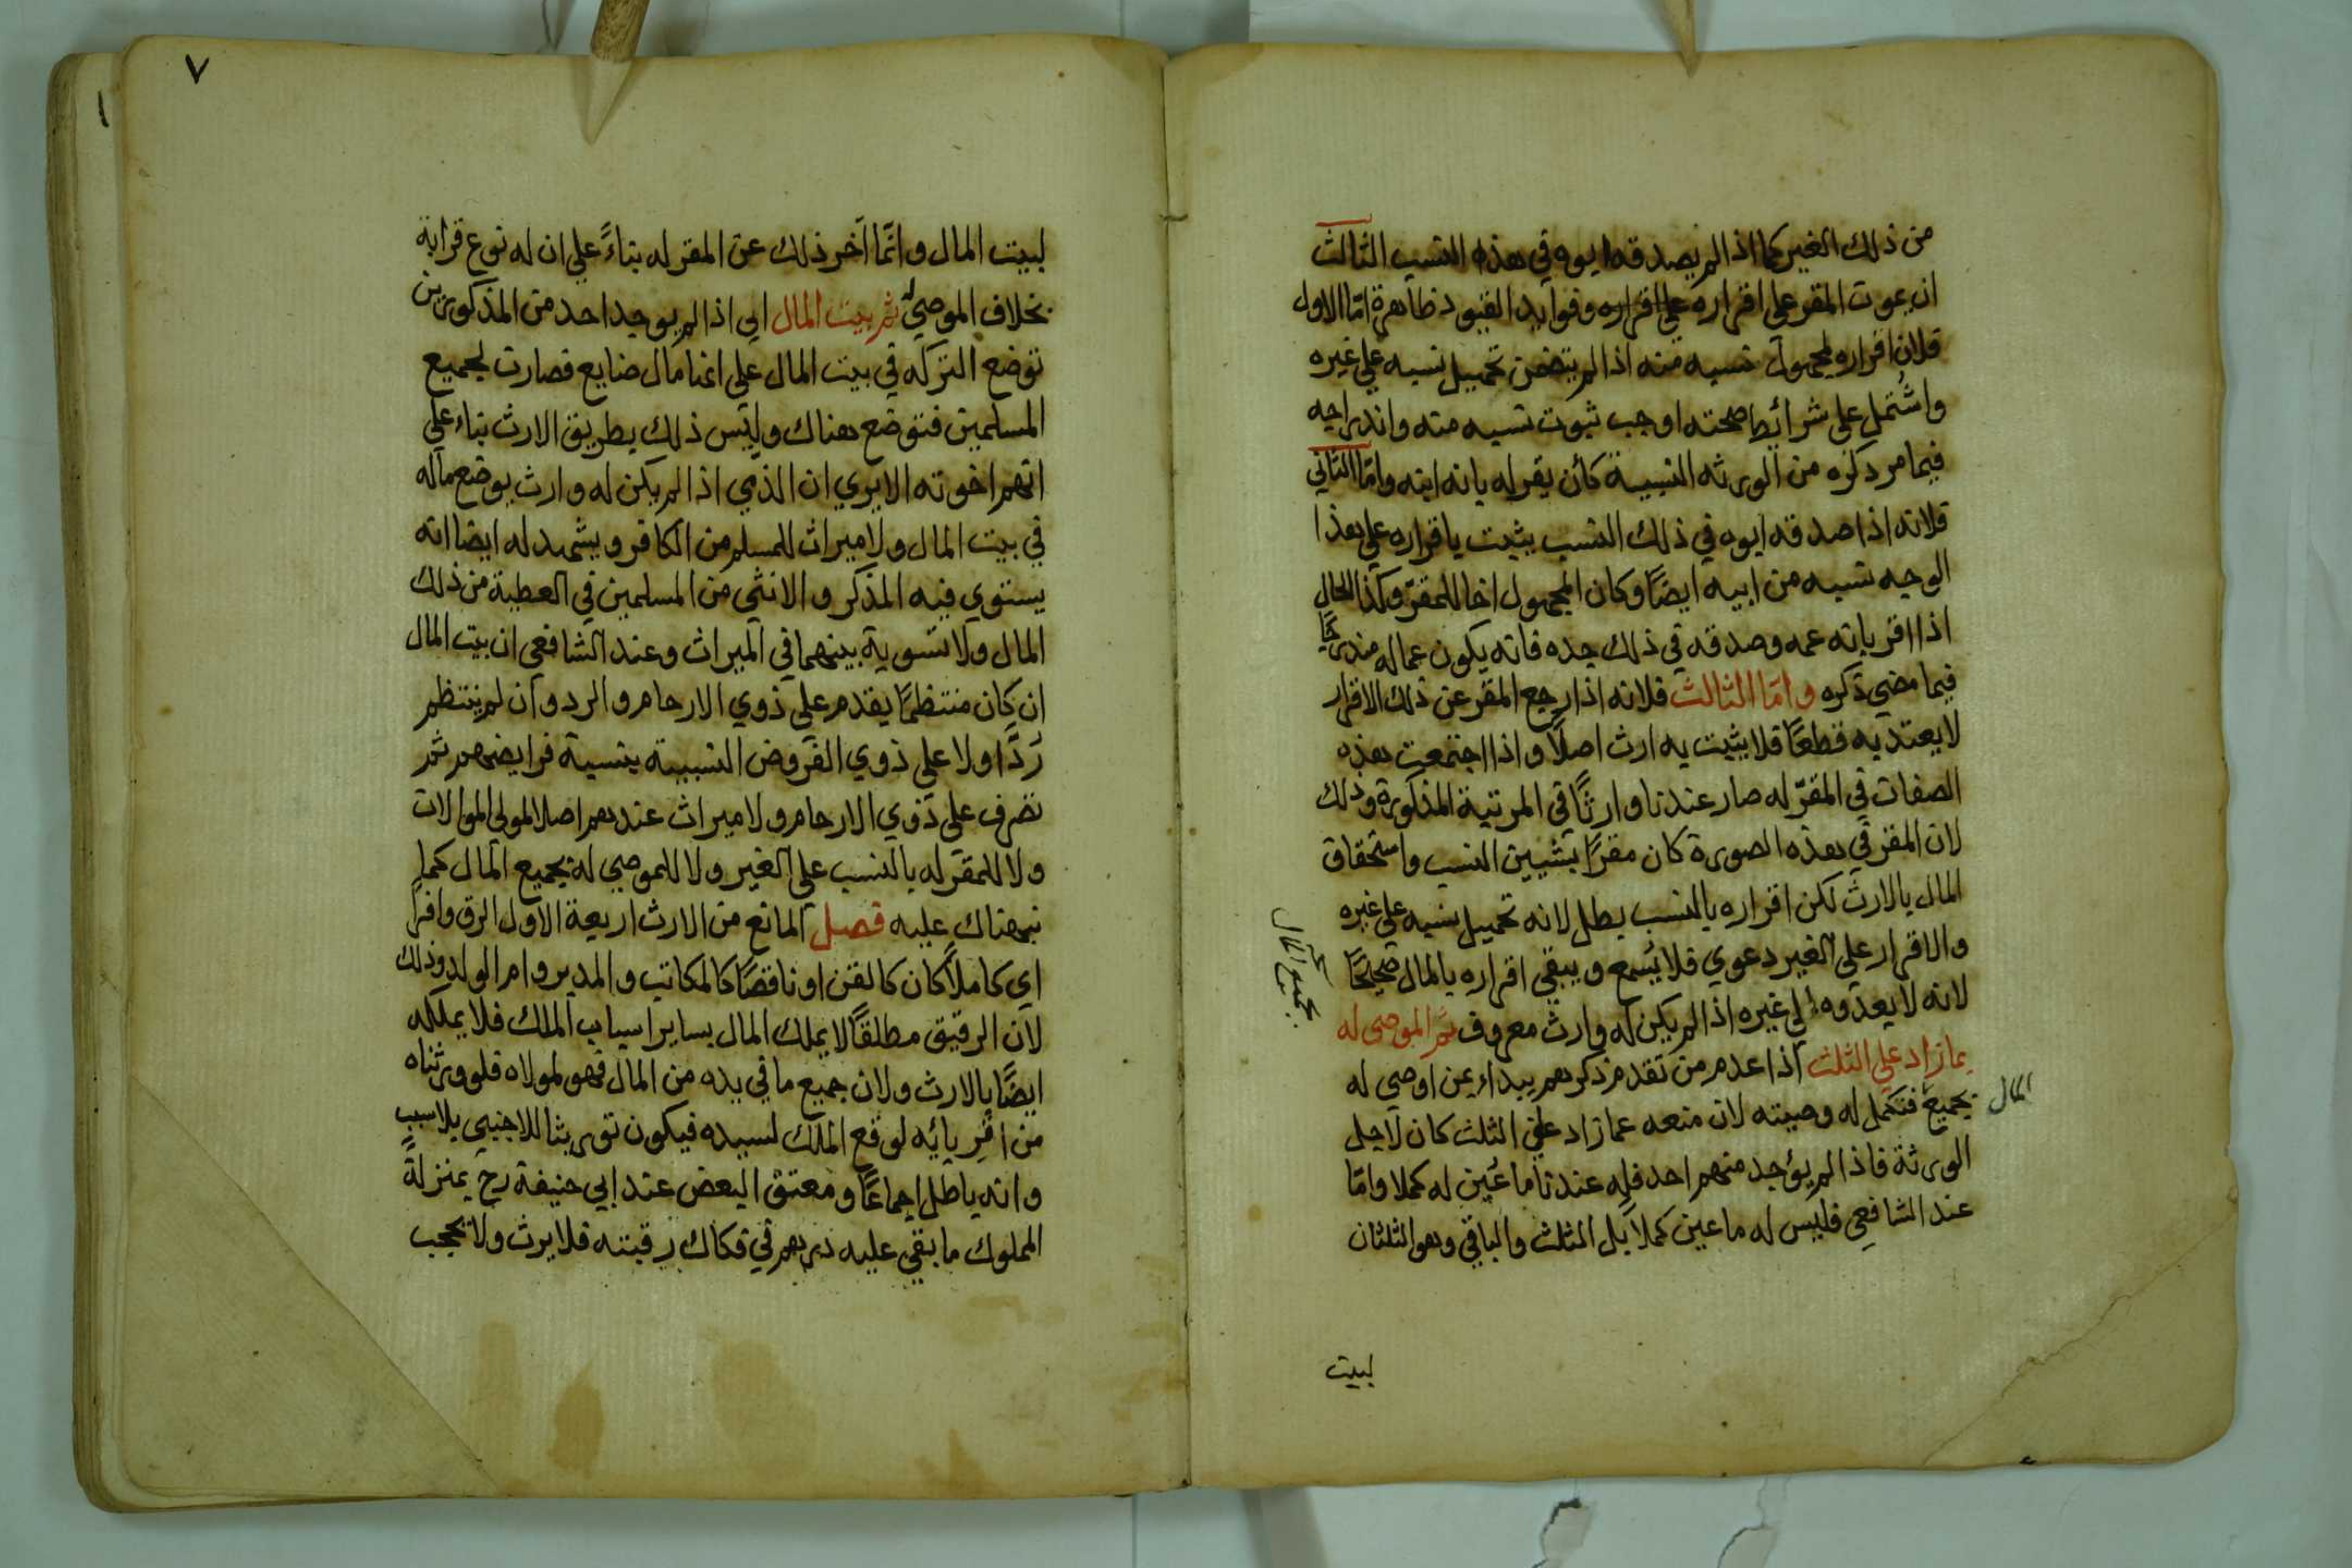 من ذلك الغير كما اذا لم يصدقه ابوه في هذه النسب الثالث
ان يموت المقر على اقراره على اقراره وفوايد القيود ظاهرة امّا الاول
فلان اقراره لمجهول نسبه منه اذا لم يتضمن تحميل نسبه على غيره
واشتمل على شرائط صحته اوجب ثبوت نسبه منه واندراجه
فيما مر ذكره من الورثه النسبية كأن يقر له بانه ابنه وامّا الثاني
فلانه اذا صدقه ابوه في ذلك النسب يثبت باقراره على هذا
الوجه نسبه من ابيه ايضًا وكان المجهول اخا للمقرّ وكذا الحال
اذا اقر بانه عمه وصدقه في ذلك جده فانه يكون عما له مندرجًا
فيما مضي ذكره وامّا الثالث فلانه اذا رجع المقر عن ذلك الاقرار
لا يعتد به قطعًا فلا يثبت به ارث اصلاً واذا اجتمعت هذه
الصفات في المقرّ له صار عندنا وارثًا في المرتبة المذكورة وذلك
لان المقر في هذه الصورة كان مقرًا بشيين النسب واستحقاق
المال بالارث لكن اقراره بالنسب بطل لانه تحميل نسبه على غيره
والاقرار على الغير دعوي فلا يُسمع ويبقي اقراره بالمال صحيحًا
لانه لا يعدوه الي غيره اذا لم يكن له وارث معروف ثم الموصى له
بما زاد علي الثلث اذا عدم من تقدم ذكرهم يبداء بمن اوصي له
بجميع فتكمل له وصيته لان منعه عما زاد علي الثلث كان لاجل
الورثة فاذا لم يؤجد منهم احد فله عندنا ما عُين له كملا وامّا
عند الشافعي فليس له ما عين كملاً بل الثلث والباقي وهو الثلثان
بجميع المال
المال
لبيت
٧
لبيت المال وانّما اخر ذلك عن المقر له بناءً على ان له نوع قرابة
بخلاف الموصي له ثم بيت المال اي اذا لم يوجد احد من المذكورين
توضع التركه في بيت المال على انها مال ضايع فصارت لجميع
المسلمين فتوضع هناك وليس ذلك بطريق الارث بناء علي
انهم اخوته الا يري ان الذمي اذا لم يكن له وارث يوضع ماله
في بيت المال ولا ميراث للمسلم من الكافر ويشهد له ايضا انه
يستوي فيه المذكر والانثى من المسلمين في العطية من ذلك
المال ولا تسوية بينهما في الميراث وعند الشافعي ان بيت المال
ان كان منتظمًا يقدم على ذوي الارحام والرد وان لم ينتظم
رَدَّ اولا على ذوي الفروض النسبية بنسبة فرايضهم ثم
تصرف علي ذوي الارحام ولا ميراث عندهم اصلا لمولى الموالات
ولا للمقر له بالنسب علي الغير ولا للموصي له بجميع المال كما
نبهناك عليه فصل المانع من الارث اربعة الاول الرق وافرًا
اي كاملاً كان كالقن او ناقصًا كالمكاتب والمدبر وام الولد وذلك
لان الرقيق مطلقًا لا يملك المال بساير اسباب الملك فلا يملكه
ايضًا بالارث ولان جميع ما في يده من المال فهو لمولاه فلو ورثناه
من اقربائه لوقع الملك لسيده فيكون توريثا للاجنبي بلا سببٍ
وانه باطل اجماعًا ومعتق البعض عند ابي حنيفة رح بمنزلة
المملوك ما بقي عليه درهم في فكاك رقبته فلا يرث ولا يحجب